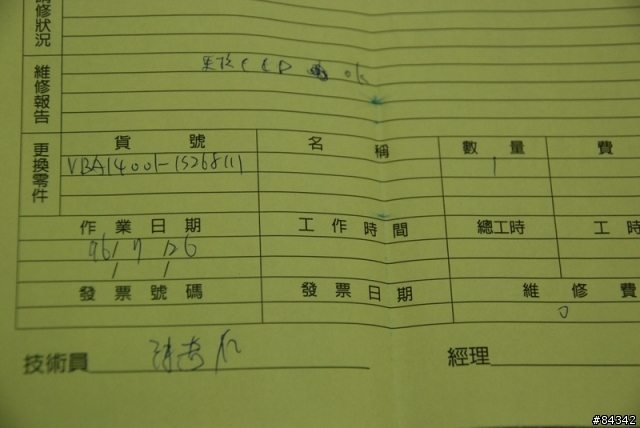 請修狀況
維修報告
更換CCD ok
更換零件
貨號 名稱 數量 費
VBA14001-1526811 1
作業日期 工作時間 總工時 工時
96/7/26
/ /
發票號碼 發票日期 維修費
0
技術員 經理
#84342